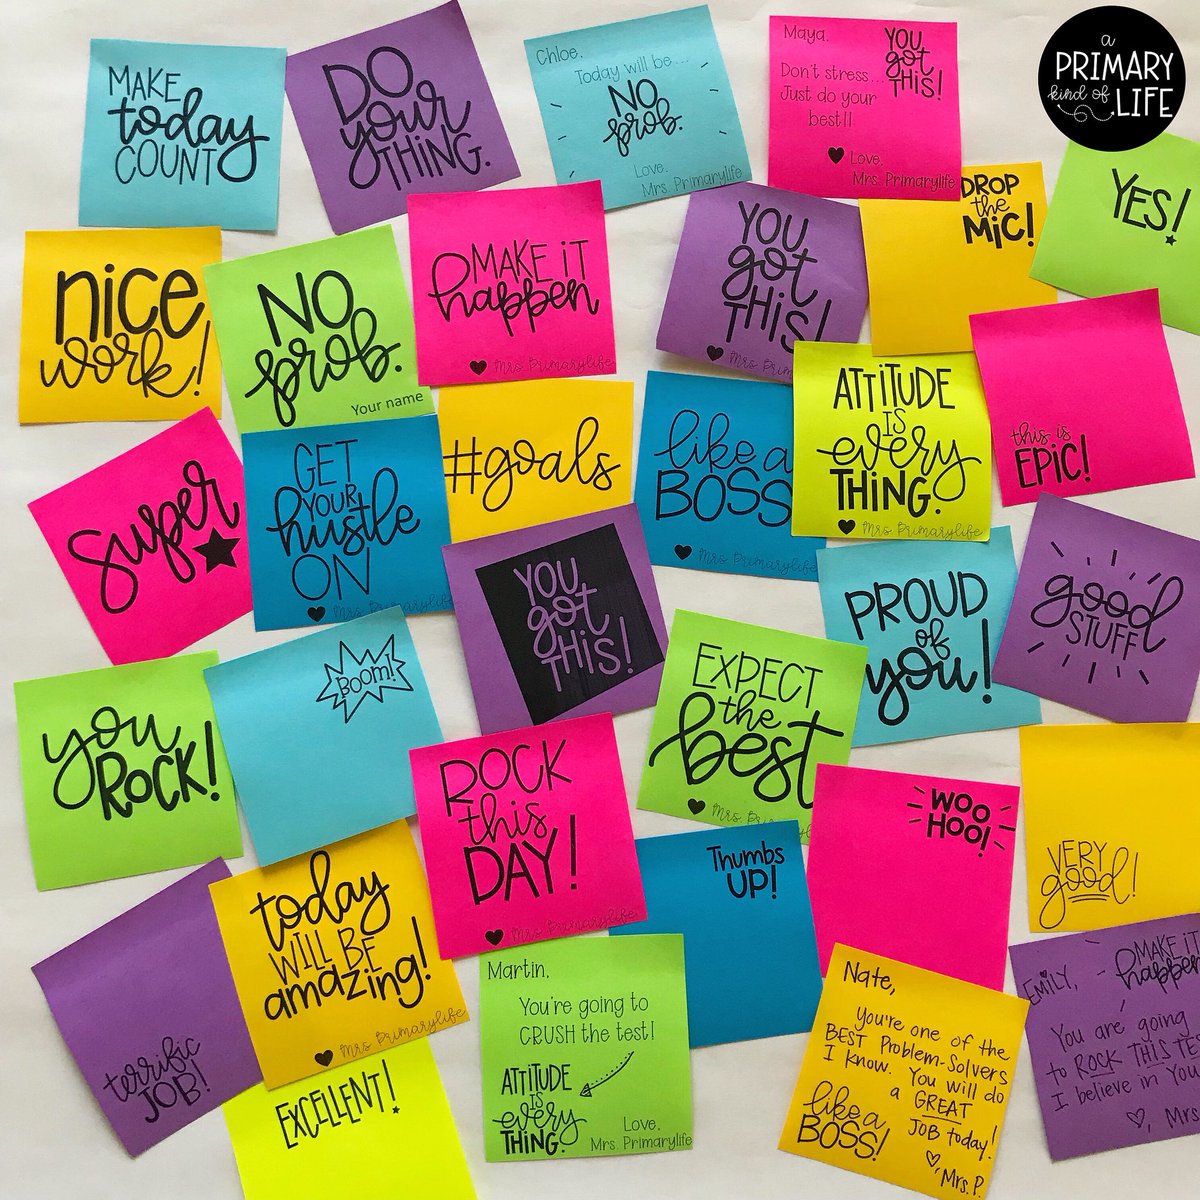 a
PRIMARY
kind of
LIFE
MAKE
today
COUNT
DO
your
THING.
Chloe,
Today will be...
NO
prob.
Love,
Mrs. Primarylife
Maya,
YOU
got
THIS!
Don't stress...
Just do your
best!!
Love,
Mrs. Primarylife
DROP
the
MIC!
YES!
nice
work!
NO
prob.
Your name
MAKE IT
happen
Mrs Primarylife
YOU
got
THIS!
Mrs
ATTITUDE
IS
every
THING.
Mrs Primarylife
this is
EPIC!
super
GET
YOUR
hustle
ON
Mrs Primarylife
#goals
like a
BOSS
Mrs Primarylife
YOU
got
THIS!
PROUD
of
you!
good
STUFF
you
ROCK!
BOOM!
EXPECT
the
best
Mrs
ROCK
this
DAY!
Mrs Primarylife
Thumbs
UP!
WOO
HOO!
VERY
good!
terrific
JOB!
today
WILL BE
amazing!
Mrs Primarylife
EXCELLENT!
Martin,
You're going to
CRUSH the test!
ATTITUDE
IS
every
THING.
Love,
Mrs. Primarylife
Nate,
You're one of the
BEST Problem-Solvers
I know. You will do
a GREAT
JOB today!
like a
BOSS!
Mrs. P.
EMILY,
MAKE IT
happen
You are going
to ROCK THIS TES
I believe in You
Mrs.